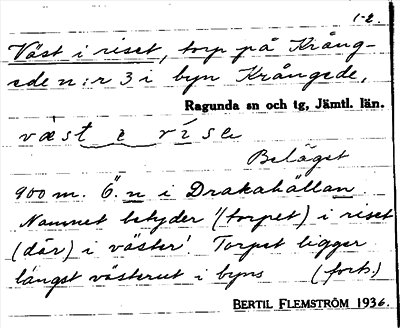 1-2.
Väst i riset, torp på Krång-
ede n:r 3 i byn Krångede,
Ragunda sn och tg, Jämtl. län.
væst i rise
Beläget
900 m. Ö. n i Drakahällan
Namnet betyder '(torpet) i riset
(där) i väster'. Torpet ligger
längst västerut i byns (forts.)
BERTIL FLEMSTRÖM 1936.